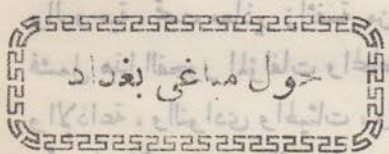 حول مباغى بغداد